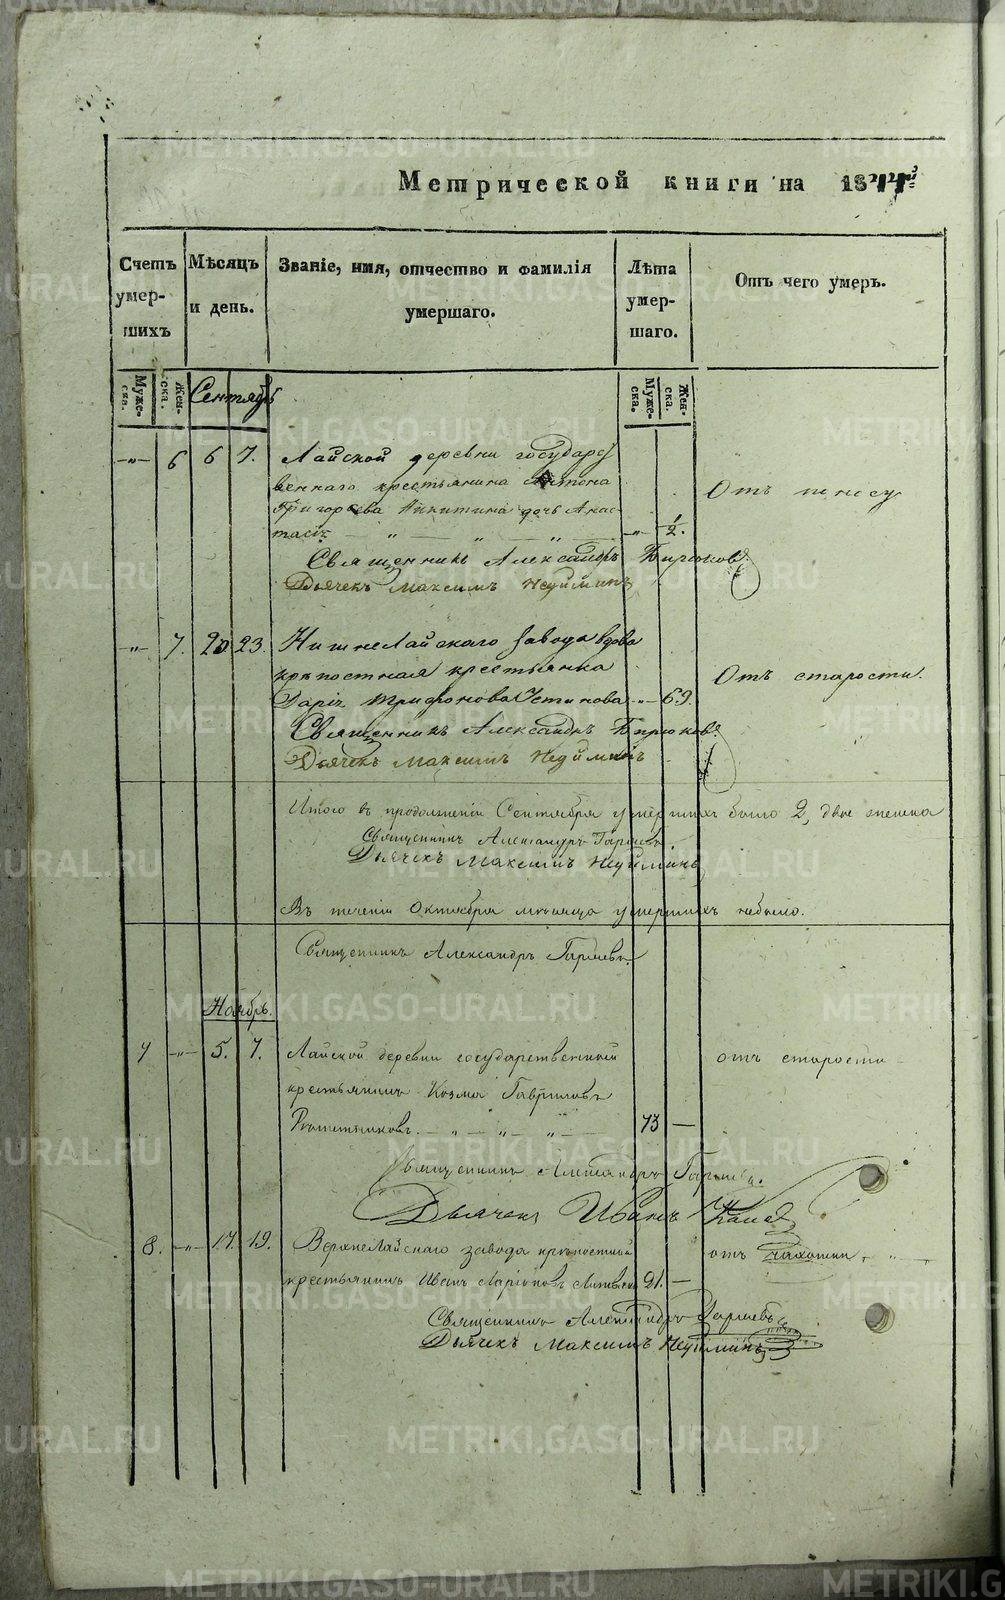 Метрической книги на 1844й
Счетъ умер-шихъ
Мѣсяцъ и день.
Званіе, имя, отчество и фамилія умершаго.
Лѣта умер-шаго.
Отъ чего умеръ.
Муже-ска.
Жен-ска.
Сентябрь
Муже-ска.
Жен-ска.
-"- 6 6 7. Лайской деревни государст
веннаго крестьянина Антона
Григорьева Никитина дочь Анас-
тасія — " — " — " — -"- 1/2.
Отъ
Священникъ Александръ Бирюковъ
Дьячекъ Максимъ Неуйминъ
-"- 7. 20 23. НижнеЛайскаго завода вдова
крѣпостная крестьянка
Дарія Трифонова Устинова -"- 69.
Отъ старости.
Священникъ Александръ Бирюковъ
Дьячекъ Максимъ Неуйминъ
Итого въ продолженіи Сентября умершихъ было 2, двѣ женска
Священникъ Александръ
Дьячекъ Максимъ Неуйминъ
Въ теченіи Октября мѣсяца умершихъ небыло.
Священникъ Александръ
Ноябрь.
7 -"- 5. 7. Лайской деревни государственный
отъ старости
крестьянинъ Козма Гавриловъ
— " — " — " — 73 —
Священникъ Александръ
Дьячекъ Иванъ
8. -"- 17. 19. ВерхнеЛайскаго завода крѣпостный
отъ чахотки " "
крестьянинъ Иванъ Ларіоновъ 21. —
Священникъ Александръ
Дьячекъ Максимъ Неуйминъ
METRIKI.GASO-URAL.RU